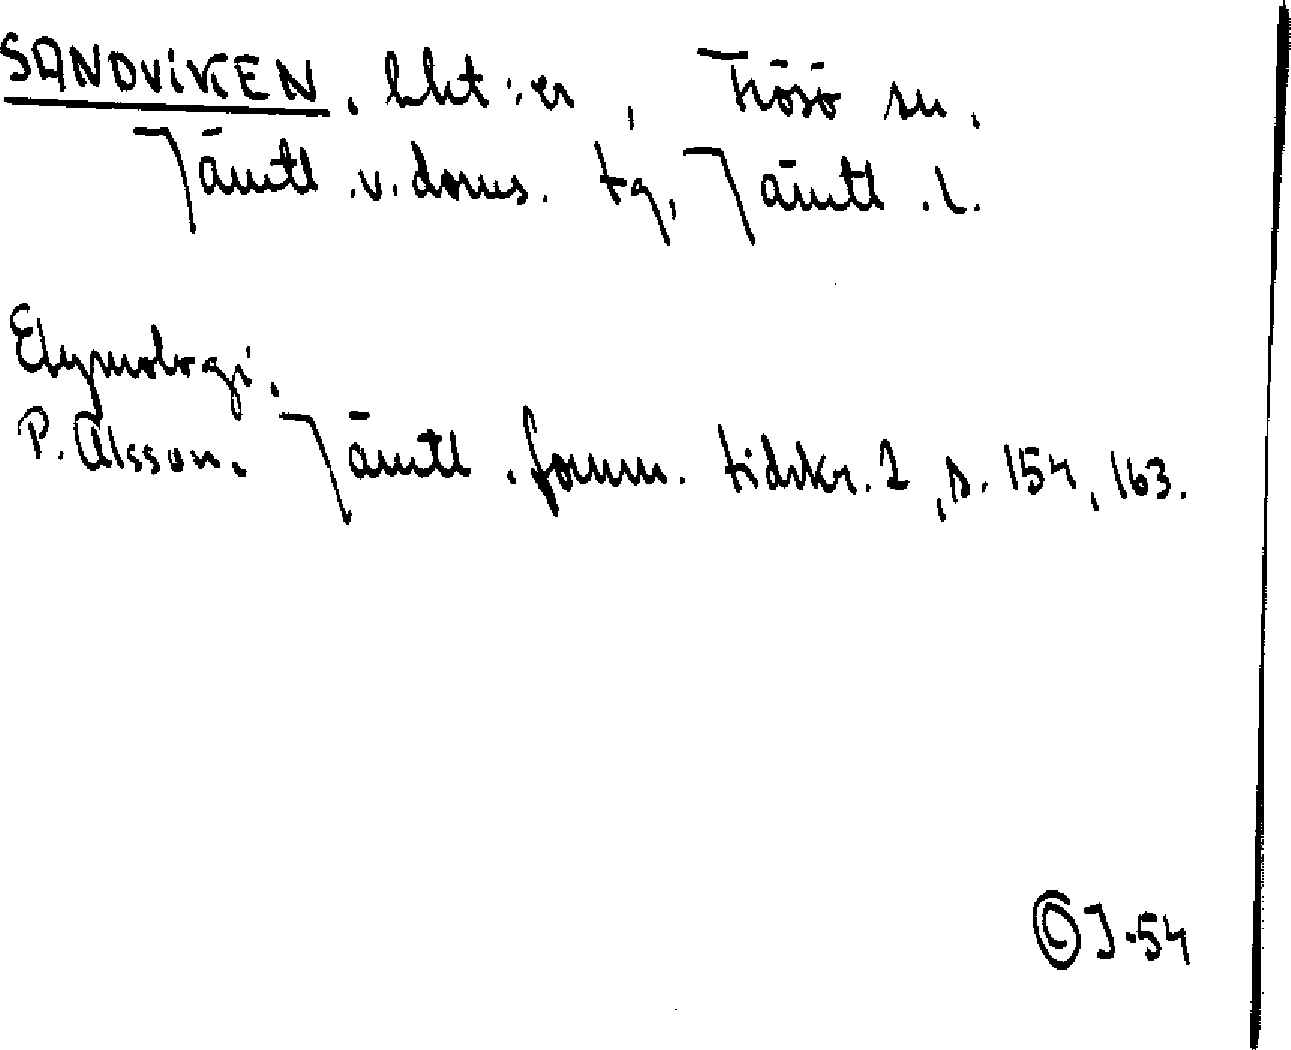 SANDVIKEN. lht :er, Frösö sn.
Jämtl. v. doms. tg, Jämtl. l.
Etymologi.
P. Olsson. Jämtl. fornm. tidskr. 2, s. 154, 163.
© J-54